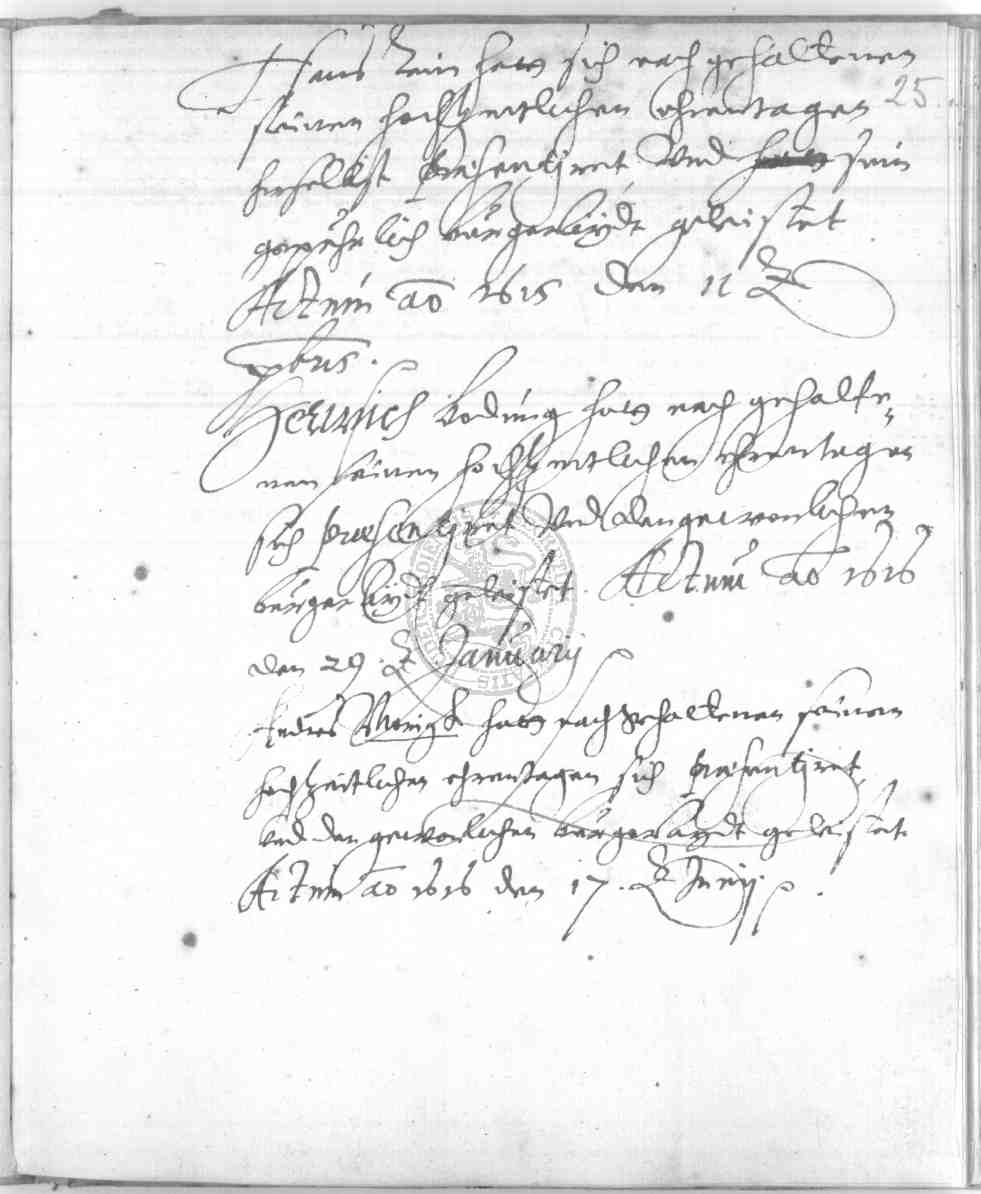 Hans hatt sich nach gehalltenen
25
seinen hochzeitlichen ehrentagen
hirselbst præsentiret Und sein
gepuhrlich bürgerleydt geleistet
Actum ao 1615 den 11
xbris.
Henrich Boding hatt nach gehalte¬
nen seinen hochzeitlichen ehrentagen
sich præsentiret Und den gewonlichen
bürgerleydt geleistet. Actum ao 1616
den 29. Januarij
Andres hatt nach gehalltenen seinen
hochzeitlichen ehrentagen sich præsentiret
Und den gewonlichen bürgerleydt geleistet.
Actum ao 1616 den 17. Junij.